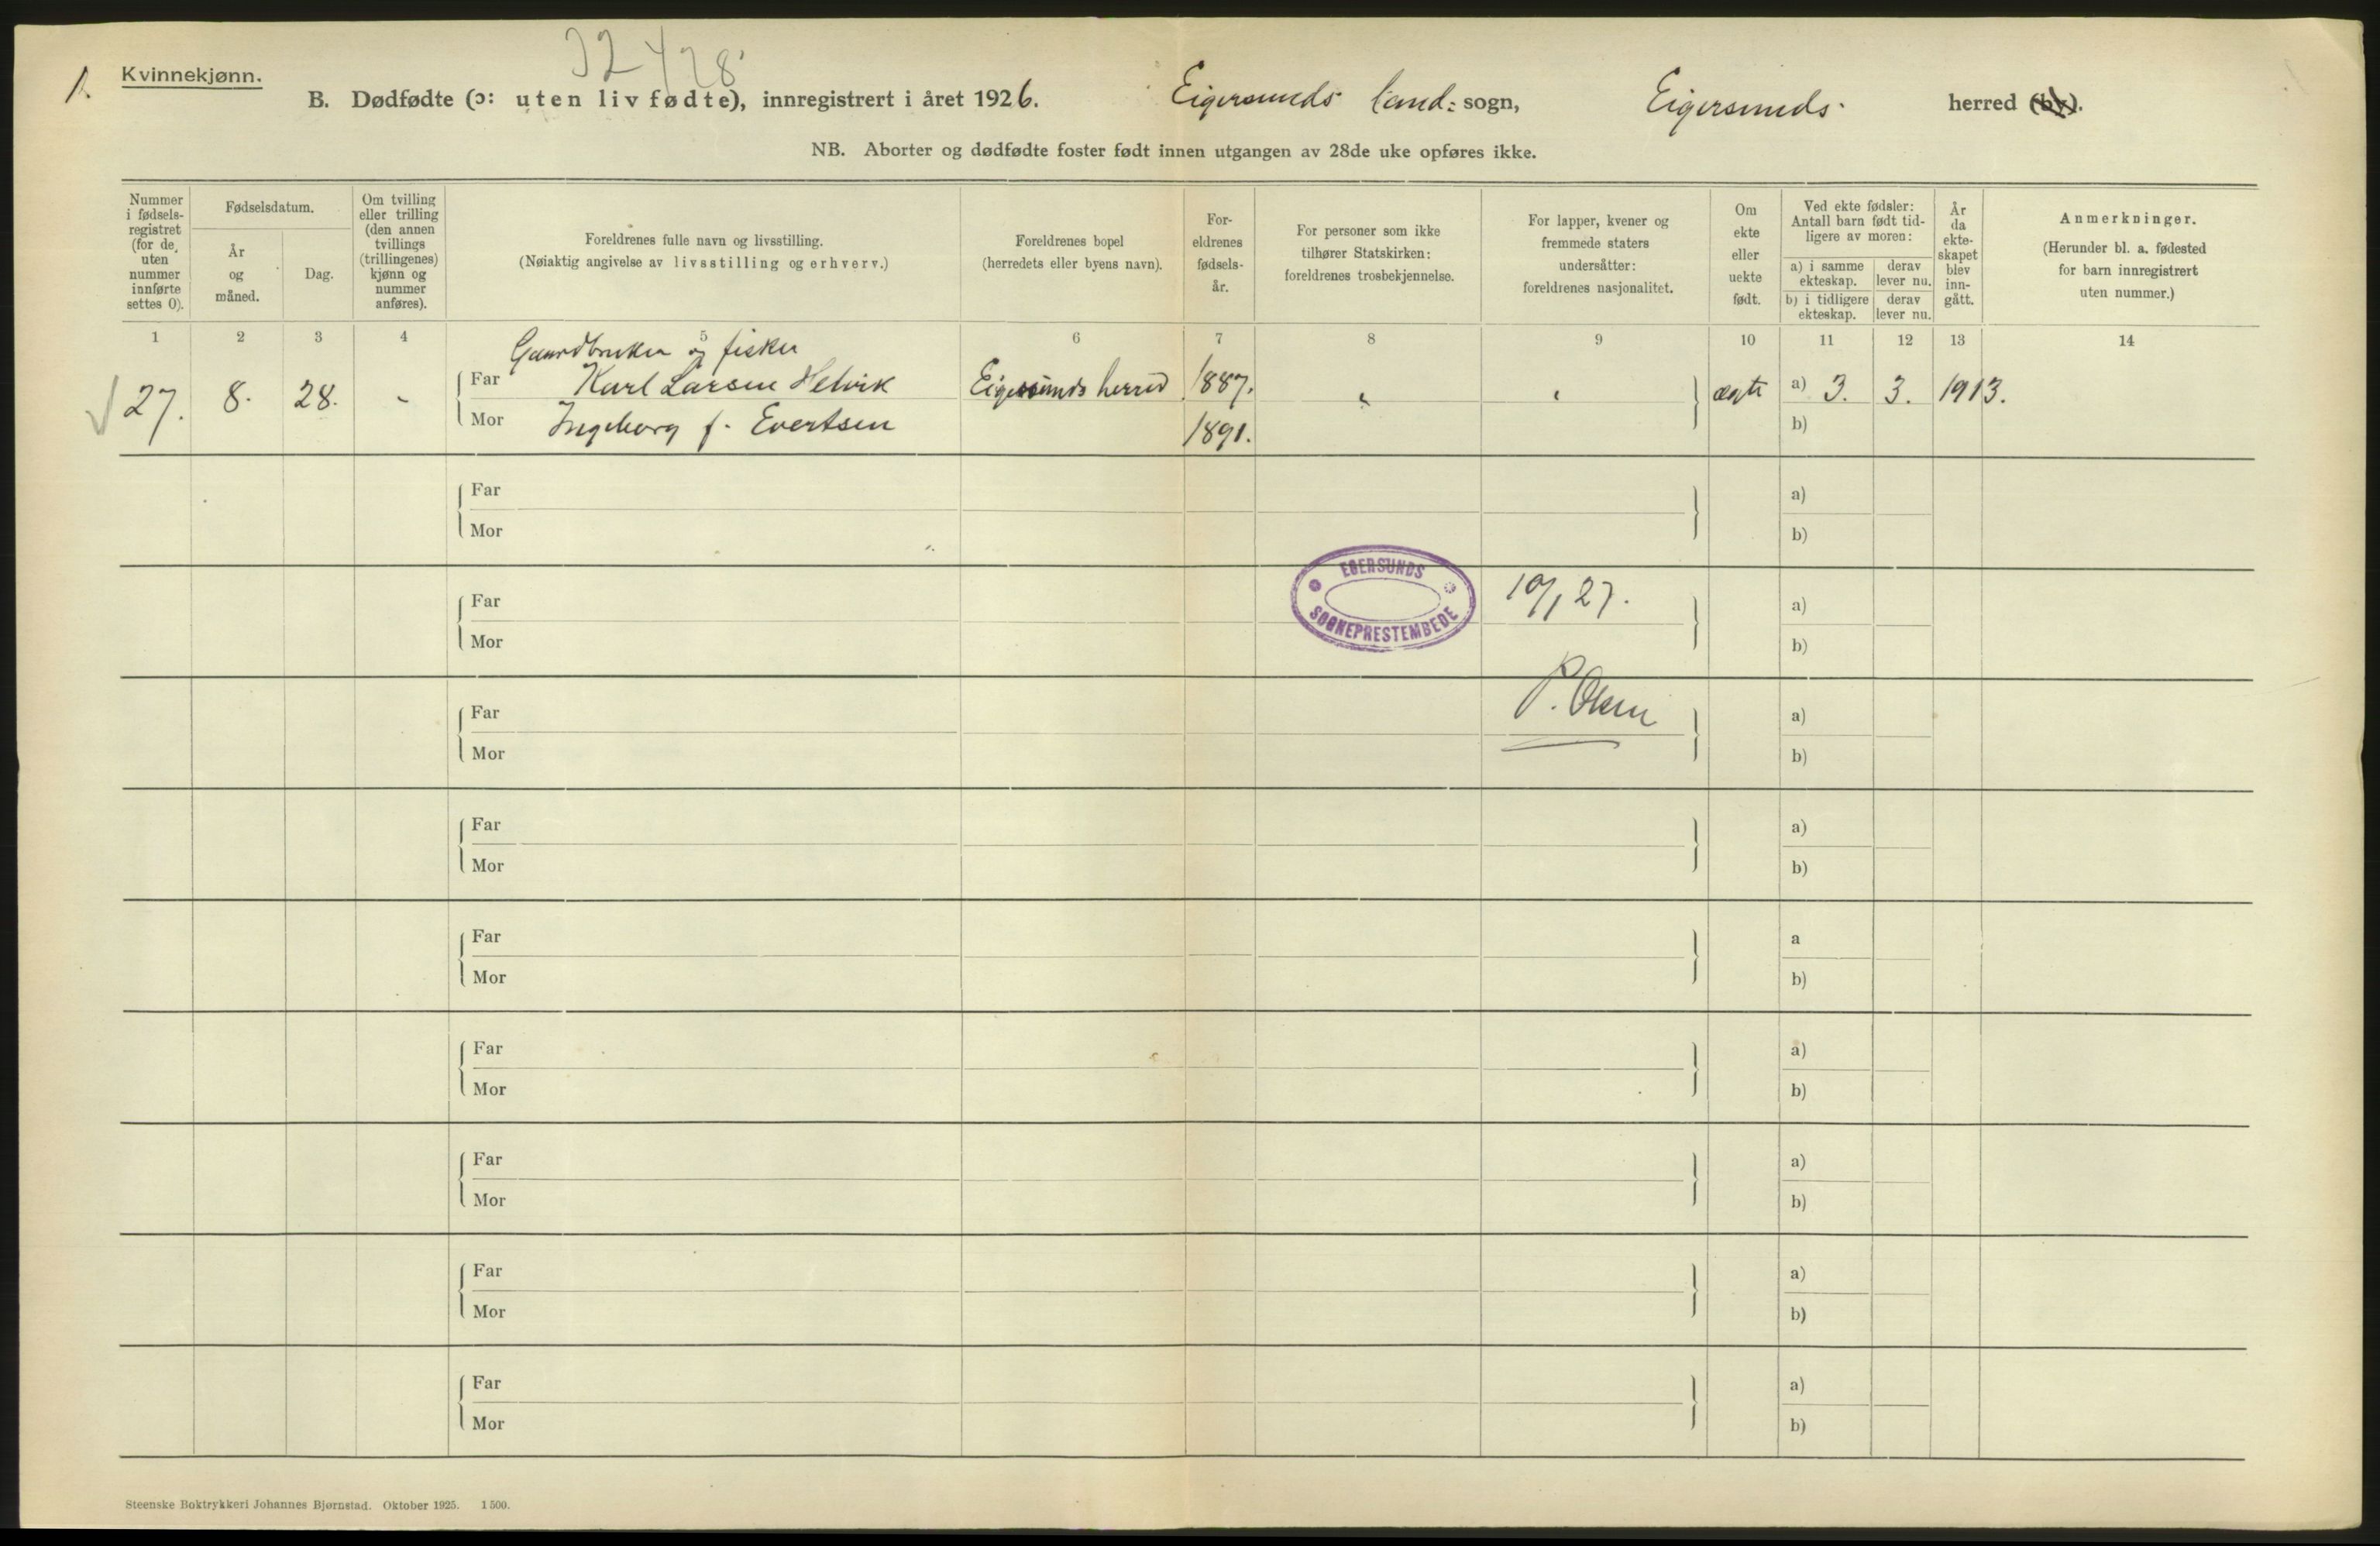 1.
Kvinnekjønn.
32478
B. Dødfødte (ɔ: uten liv fødte), innregistrert i året 1926. Eigersunds land: sogn, Eigersunds herred (by).
NB. Aborter og dødfødte foster født innen utgangen av 28de uke opføres ikke.
Nummer
i fødsels-
registret
(for de
uten
nummer
innførte
settes 0).
Fødselsdatum.
År
og
måned.
Dag.
Om tvilling
eller trilling
(den annen
tvillings
(trillingenes)
kjønn og
nummer
anføres).
Foreldrenes fulle navn og livsstilling.
(Nøiaktig angivelse av livsstilling og erhverv.)
Foreldrenes bopel
(herredets eller byens navn).
For-
eldrenes
fødsels-
år.
For personer som ikke
tilhører Statskirken:
foreldrenes trosbekjennelse.
For lapper, kvener og
fremmede staters
undersåtter:
foreldrenes nasjonalitet.
Om
ekte
eller
uekte
født.
Ved ekte fødsler:
Antall barn født tid-
ligere av moren:
a) i samme
ekteskap.
derav
lever nu.
b) i tidligere
ekteskap.
derav
lever nu.
År
da
ekte-
skapet
blev
inn-
gått.
Anmerkninger.
(Herunder bl. a. fødested
for barn innregistrert
uten nummer.)
1 2 3 4 5 6 7 8 9 10 11 12 13 14
Gaardbruker og fisker
27. 8. 28. - Far Karl Larsen Helvik Eigersunds herred 1887. " " ægte a) 3. 3. 1913.
Mor Ingeborg f. Evertsen 1891. b)
Far a)
Mor b)
EGERSUNDS
SOGNEPRESTEMBEDE
10/1 27.
Far a)
Mor b)
P. Olsen
Far a)
Mor b)
Far a)
Mor b)
Far a
Mor b)
Far a)
Mor b)
Far a)
Mor b)
Far a)
Mor b)
Far a)
Mor b)
Steenske Boktrykkeri Johannes Bjørnstad. Oktober 1925. 1500.